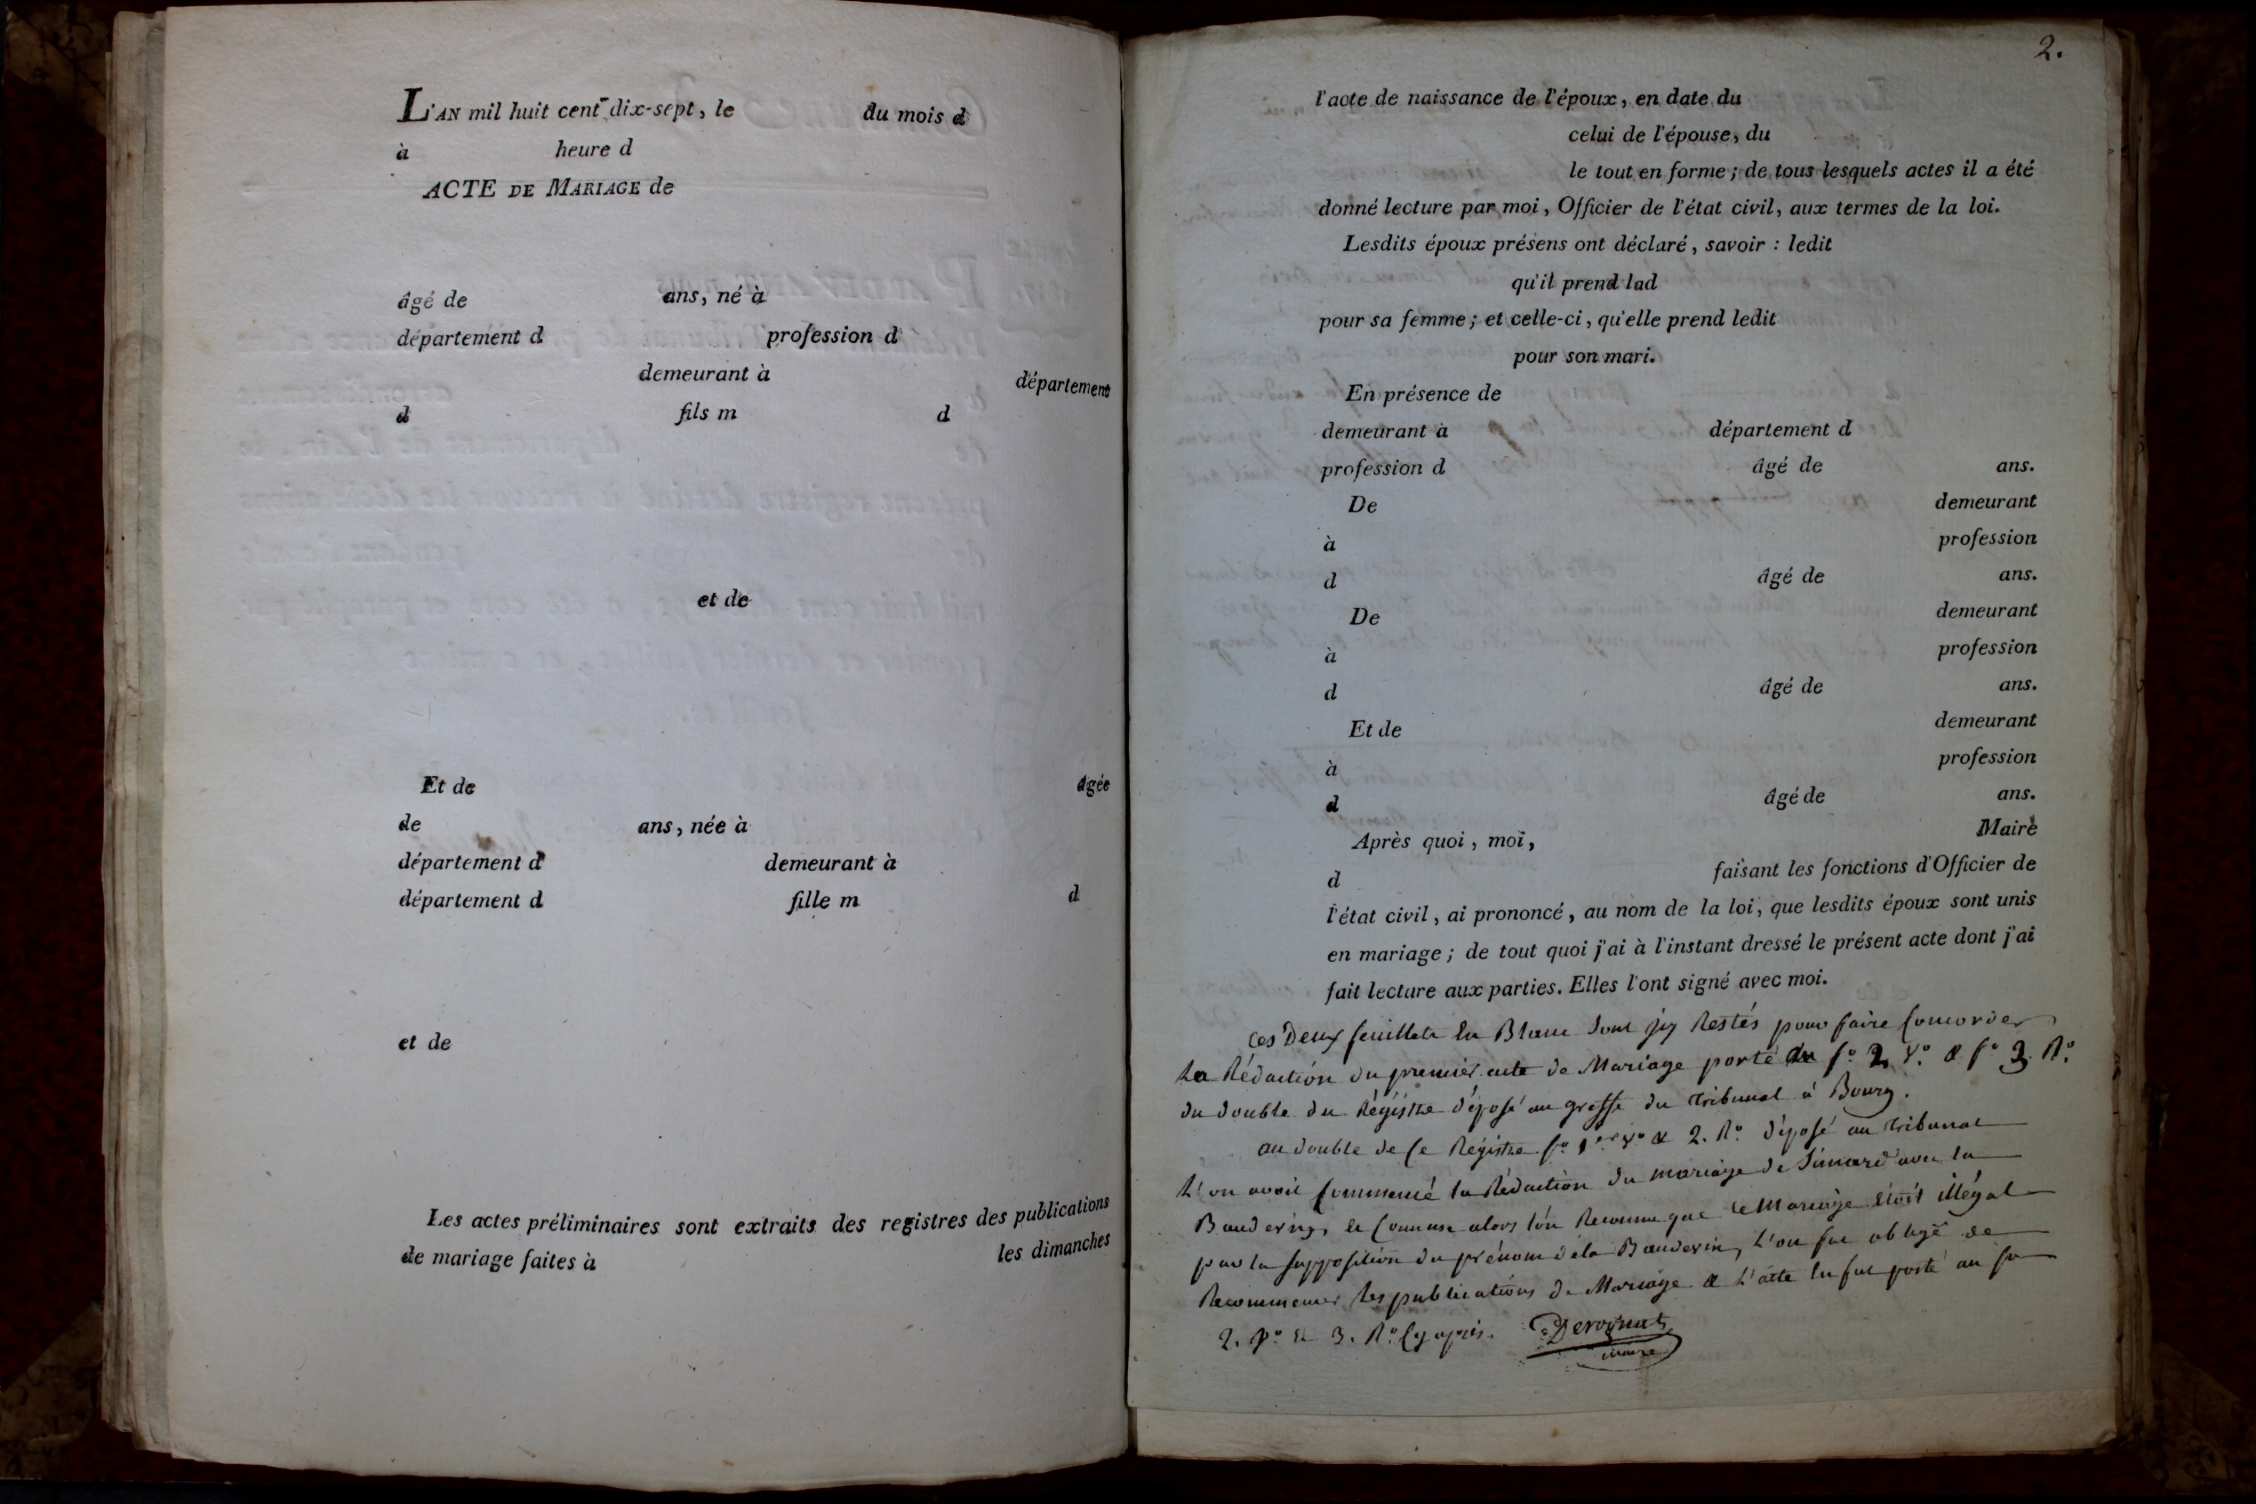 L'AN mil huit cent dix-sept, le du mois d
à heure d
ACTE DE MARIAGE de
âgé de ans, né à
département d profession d
demeurant à département
d fils m d
et de
Et de âgée
de ans, née à
département d demeurant à
département d fille m d
et de
Les actes préliminaires sont extraits des registres des publications
de mariage faites à les dimanches
2.
l'acte de naissance de l'époux, en date du
celui de l'épouse, du
le tout en forme ; de tous lesquels actes il a été
donné lecture par moi, Officier de l'état civil, aux termes de la loi.
Lesdits époux présens ont déclaré, savoir : ledit
qu'il prend lad
pour sa femme ; et celle-ci, qu'elle prend ledit
pour son mari.
En présence de
demeurant à département d
profession d âgé de ans.
De demeurant
à profession
d âgé de ans.
De demeurant
à profession
d âgé de ans.
Et de demeurant
à profession
d âgé de ans.
Après quoi, moi, Maire
d faisant les fonctions d'Officier de
l'état civil, ai prononcé, au nom de la loi, que lesdits époux sont unis
en mariage ; de tout quoi j'ai à l'instant dressé le présent acte dont j'ai
fait lecture aux parties. Elles l'ont signé avec moi.
Ces Deux feuillets En Blanc sont Restés pour faire Concorder
La Rédaction du premier acte de Mariage porté au f.o 2 V.o & f.o 3. R.o
du double du Régistre déposé au greffe du Tribunal à Bourg.
au double de Ce Régistre f.o 1.er V.o & 2. R.o déposé au Tribunal
L'on avait Commencé la Rédaction du mariage de avec la
Bauderin, & Comme alors l'on Reconnu que le Mariage étoit illégal
par la supposition du prénom de la Bauderin, L'on fut obligé de
Recommencer Les publications de Mariage & L'acte En fut porté au f.o
2. V.o & 3. R.o Cy après. Derognat
maire